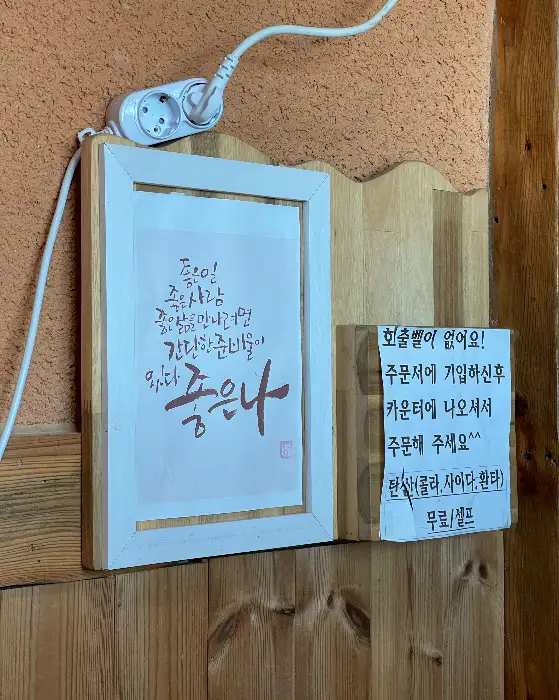 좋은일
좋은사람
좋은삶을만나려면
간단한준비물이
있다
좋은나
회출벨이 없어요!
주문서에 기입하신후
카운터에 나오셔서
주문해 주세요^^
탄산(콜라,사이다,환타)
무료/셀프